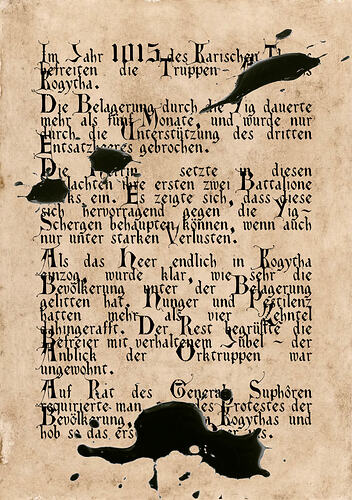 Im Jahr 1015 des Karischen
befreiten die Truppen-
Rogytha.
Die Belagerung durch die Yig dauerte
mehr als fünf Monate, und wurde nur
durch die Unterstützung des dritten
Entsatzheeres gebrochen.
Die setzte in diesen
Schlachten ihre ersten zwei Bataillone
ein. Es zeigte sich, dass diese
sich hervorragend gegen die Yig-
Schergen behaupten können, wenn auch
nur unter starken Verlusten.
Als das Heer endlich in Rogytha
einzog, wurde klar, wie sehr die
Bevölkerung unter der Belagerung
gelitten hat. Hunger und Pestilenz
hatten mehr als vier Zehntel
dahingerafft. Der Rest begrüßte die
Befreier mit verhaltenem Jubel - der
Anblick der Orktruppen war
ungewohnt.
Auf Rat des Generals Suphören
requirierte man des Protestes der
Bevölkerung, Rogythas und
hob so das